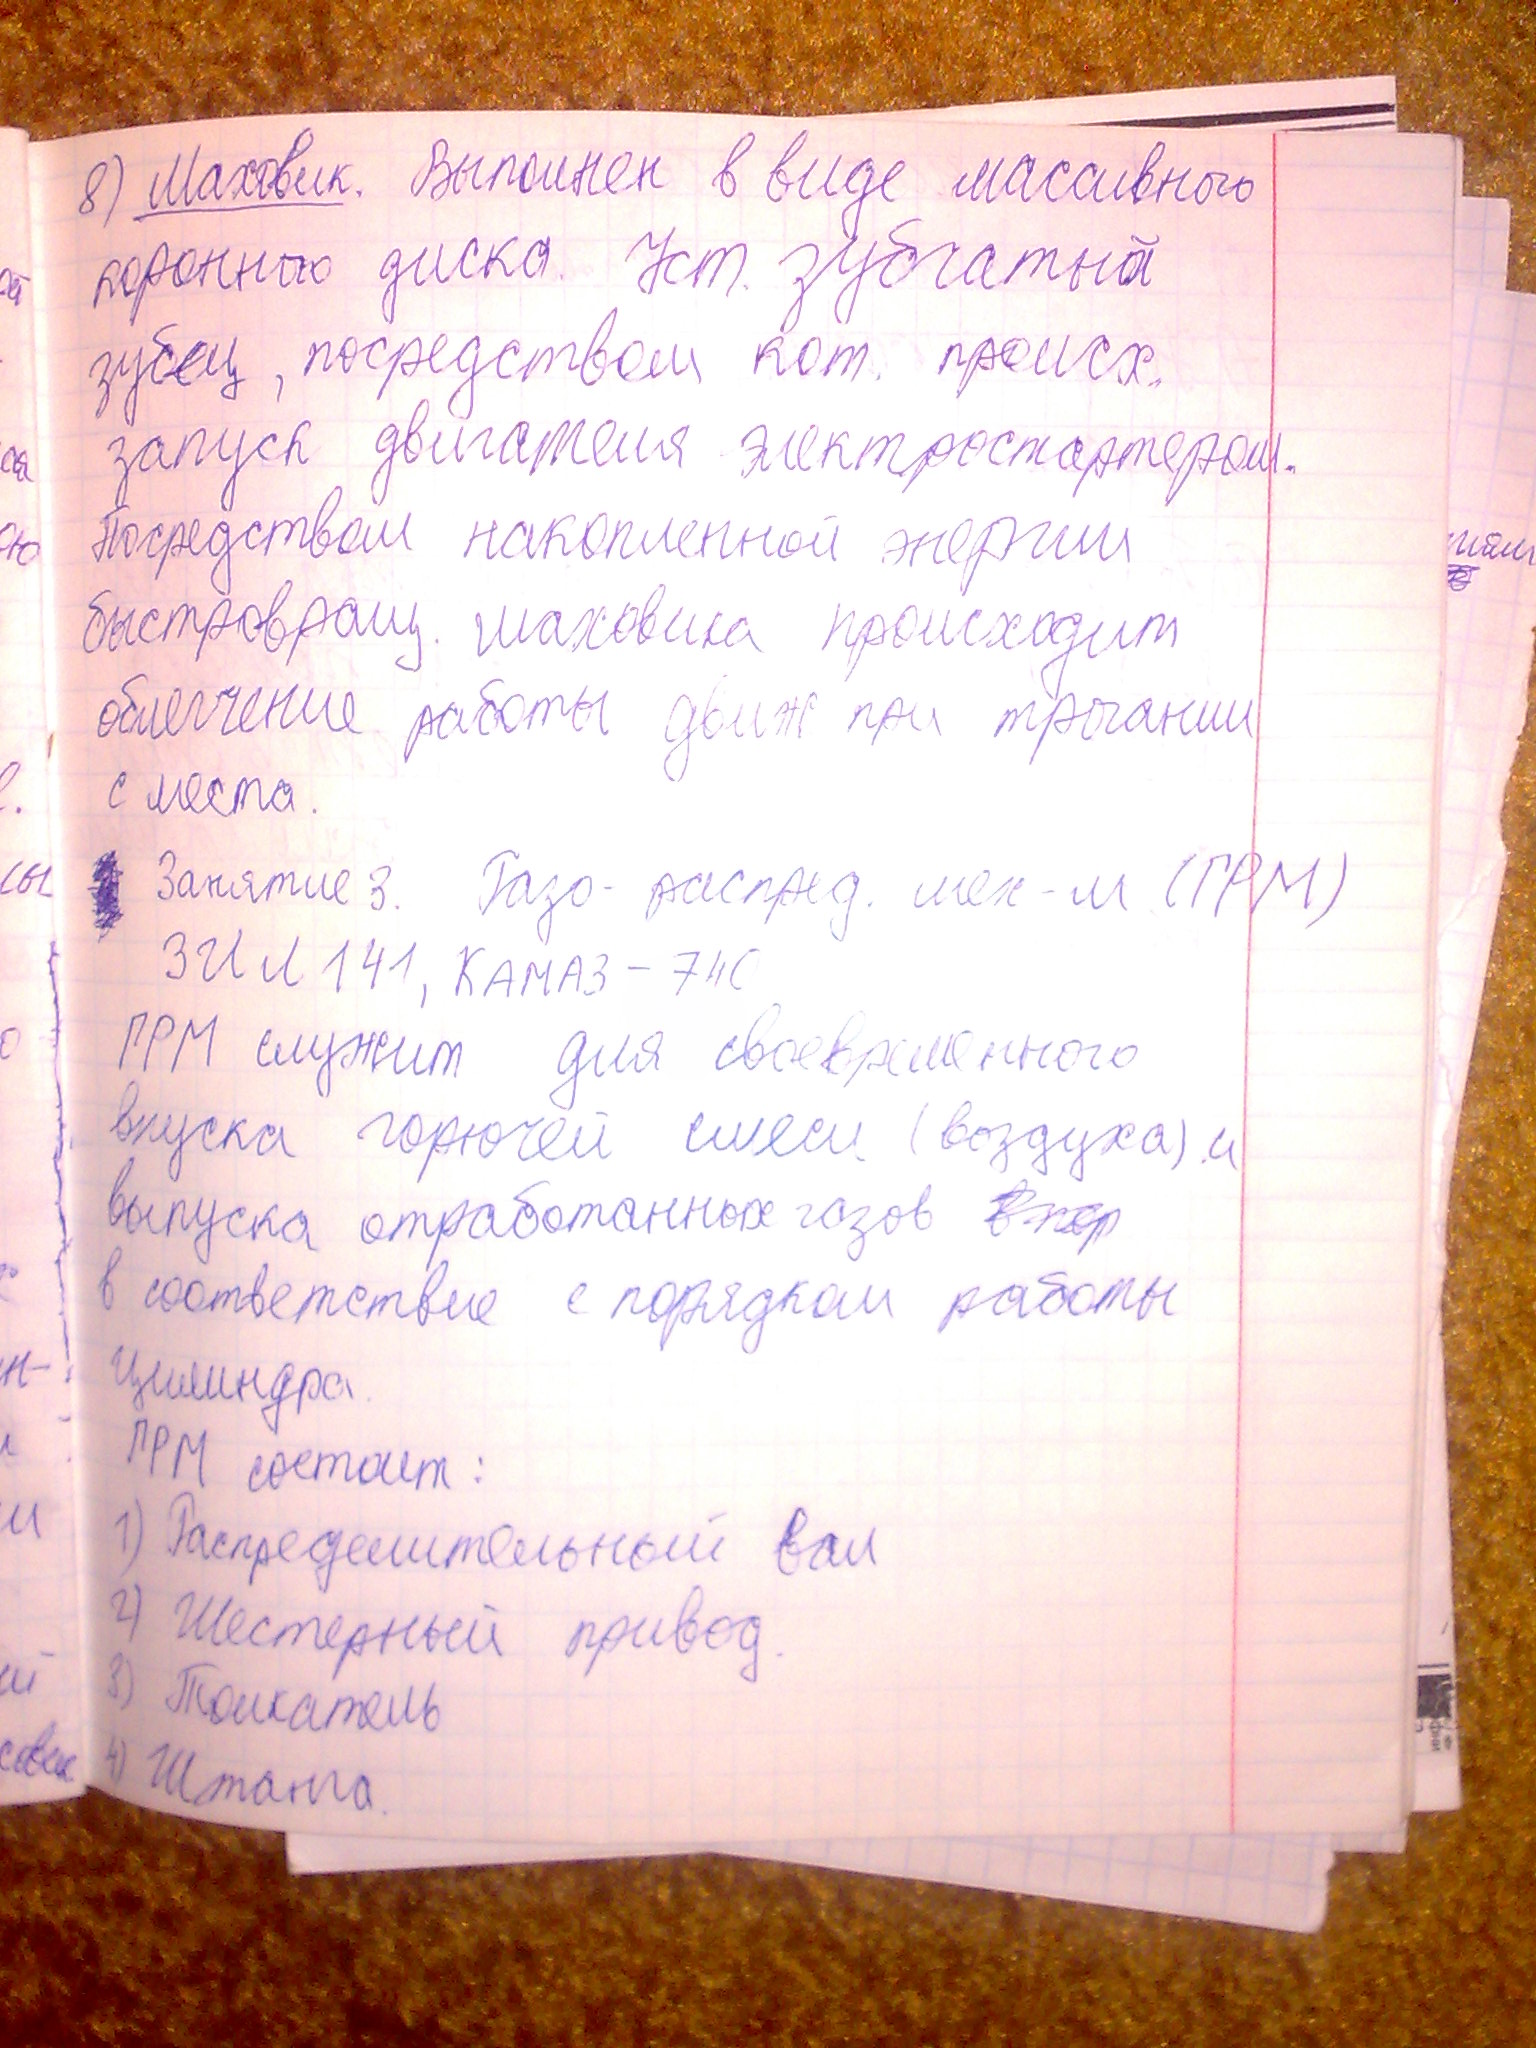 8) Маховик. Выполнен в виде массивного
коронного диска. Уст. зубчатый
зубец, посредством кот. происх.
запуск двигателя электростартером.
Посредством накопленной энергии
быстровращ. маховика происходит
облегчение работы движ при трогании
с места.
Занятие 3. Газо-распред. мех-м (ГРМ)
ЗИЛ 141, КАМАЗ-740
ГРМ служит для своевременного
впуска горючей смеси (воздуха) и
выпуска отработанных газов
в соответствие с порядком работы
цилиндра.
ГРМ состоит:
1) Распределительный вал
2) Шестерный привод.
3) Толкатель
4) Штанга.